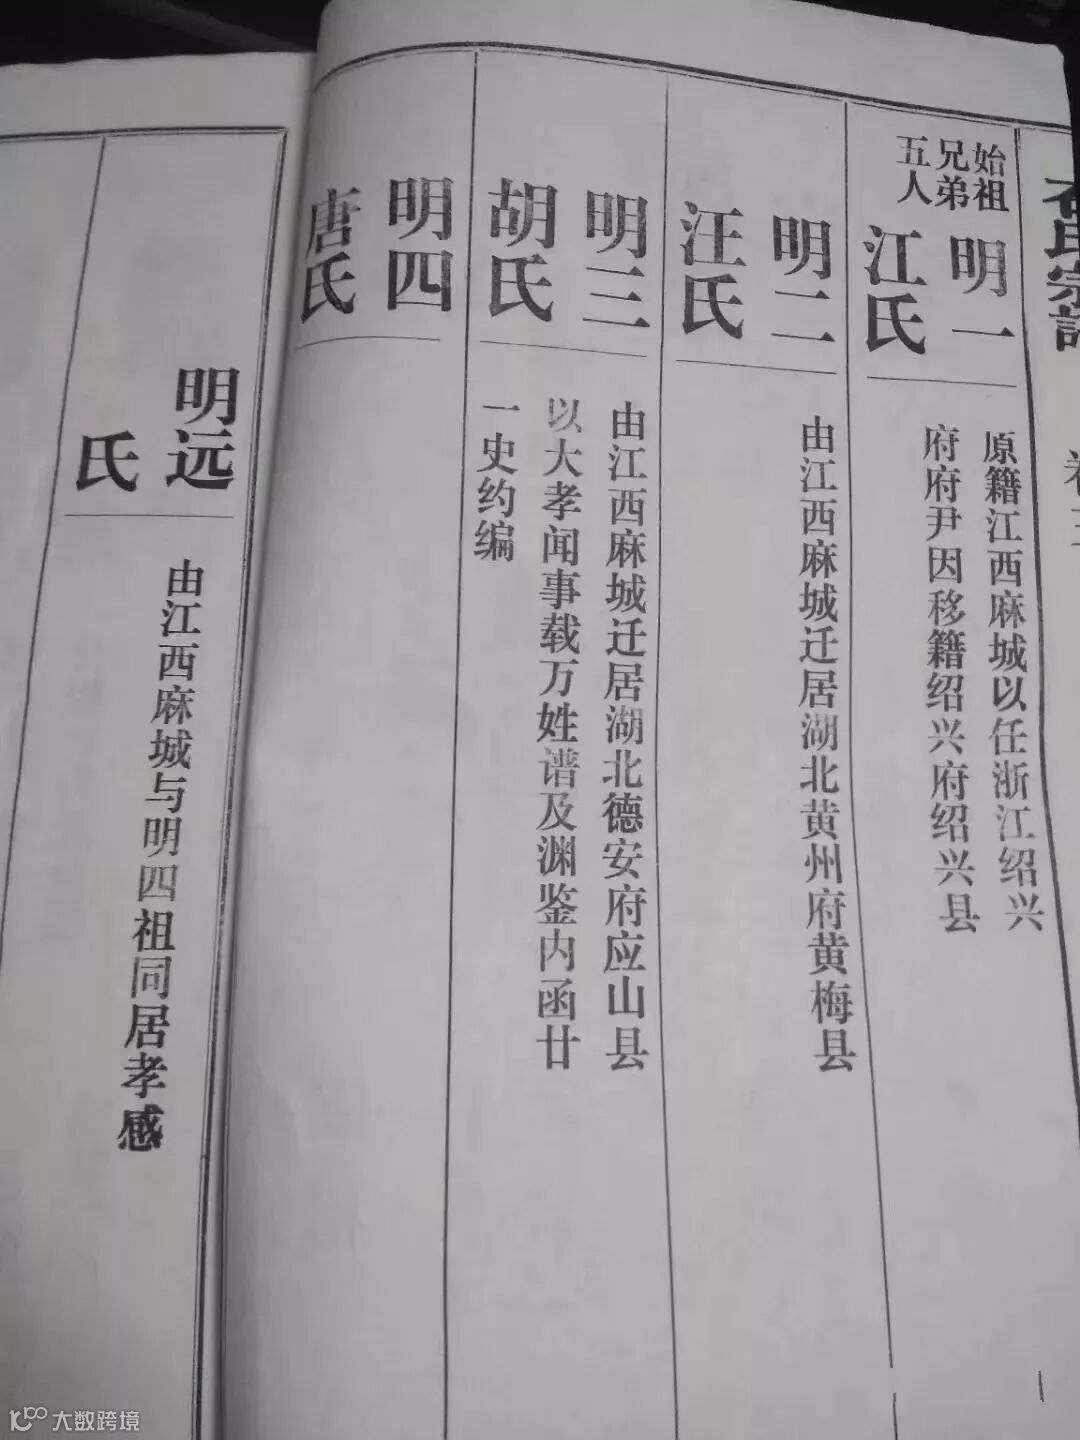 氏宗譜
始祖
兄弟
五人
明一
江氏
原籍江西麻城以任浙江绍兴
府府尹因移籍绍兴府绍兴县
明二
汪氏
由江西麻城迁居湖北黄州府黄梅县
明三
胡氏
由江西麻城迁居湖北德安府应山县
以大孝闻事载万姓谱及渊鉴内函廿
一史约编
明四
唐氏
明远
氏
由江西麻城与明四祖同居孝感
大数跨境